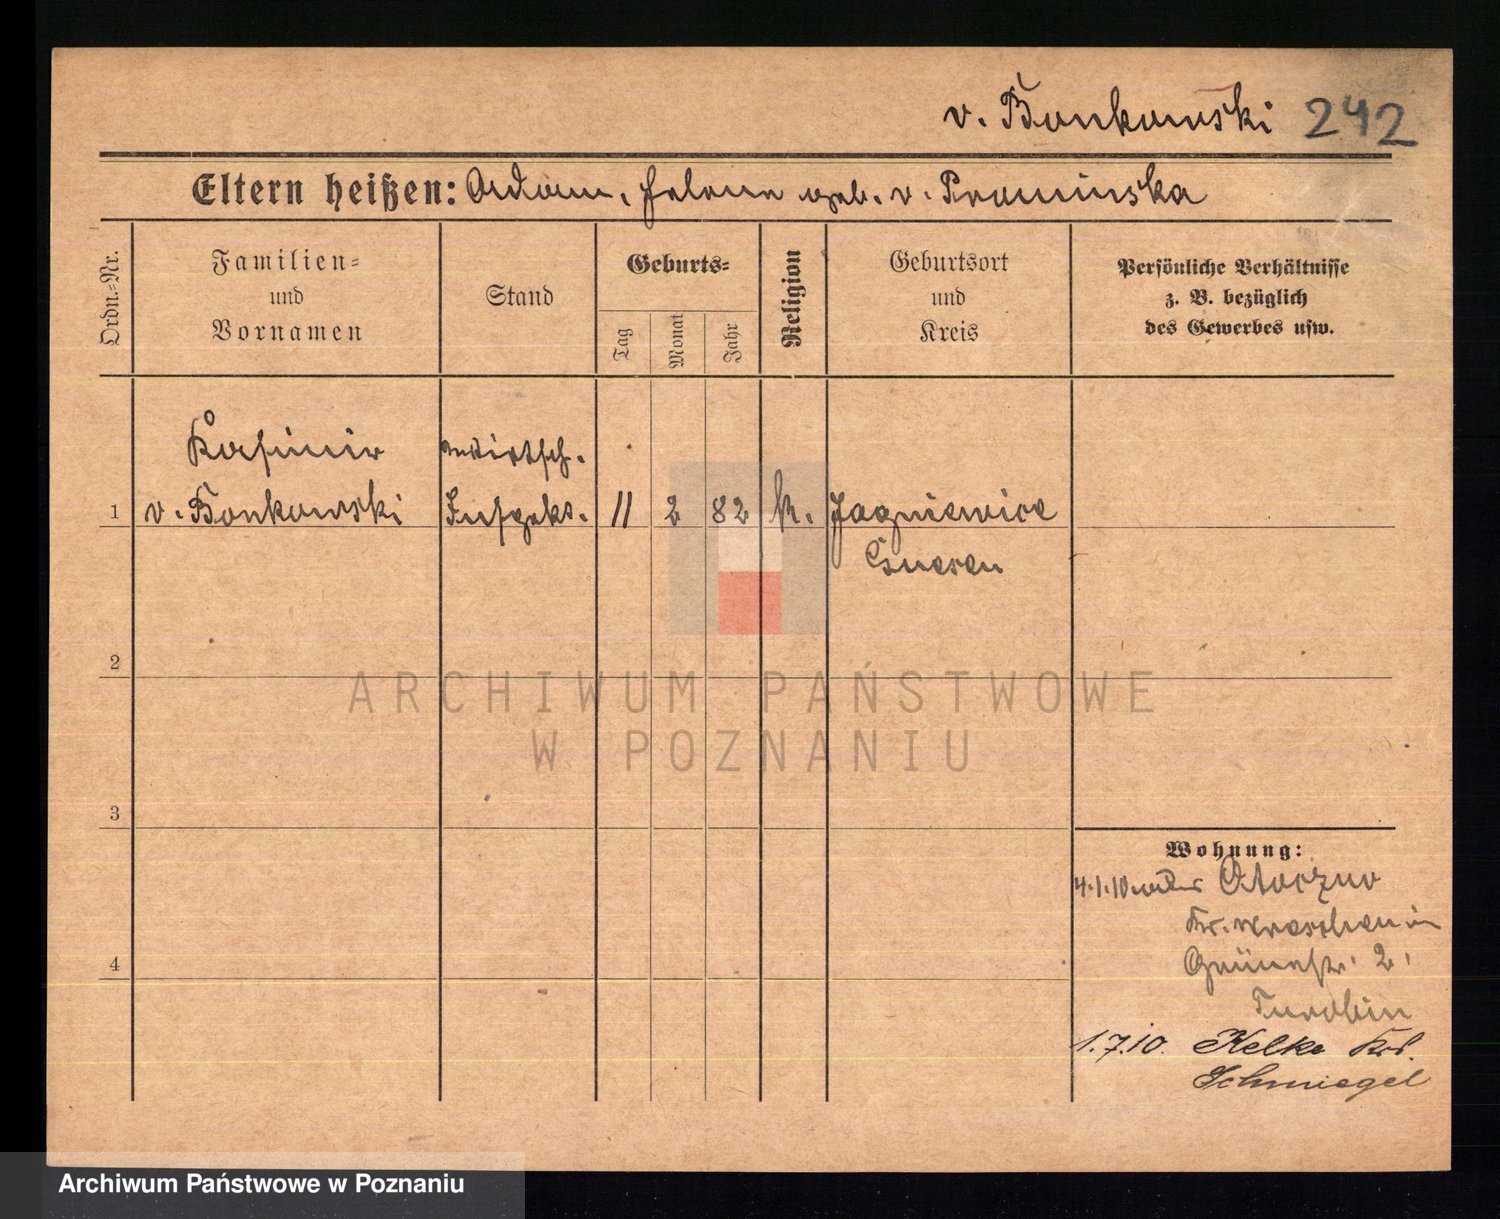 v. Bonkowski 242
Eltern heißen: Adam, Helene geb. v. Prominska
Ordn.-Nr.
Familien-
und
Vornamen
Stand
Geburts-
Tag
Monat
Jahr
Religion
Geburtsort
und
Kreis
Persönliche Verhältnisse
z. B. bezüglich
des Gewerbes usw.
Kasimir
Wirtsch.
1 v. Bonkowski Inspekt. 11 2 82 k. Jagniewice
Gnesen
2
ARCHIWUM PAŃSTWOWE
W POZNANIU
3
Wohnung:
4.1.10 Otoczno
Kr. Wreschen in
4
Grünestr. 2,
1.7.10. Kelke Krs.
Schmiegel
Archiwum Państwowe w Poznaniu